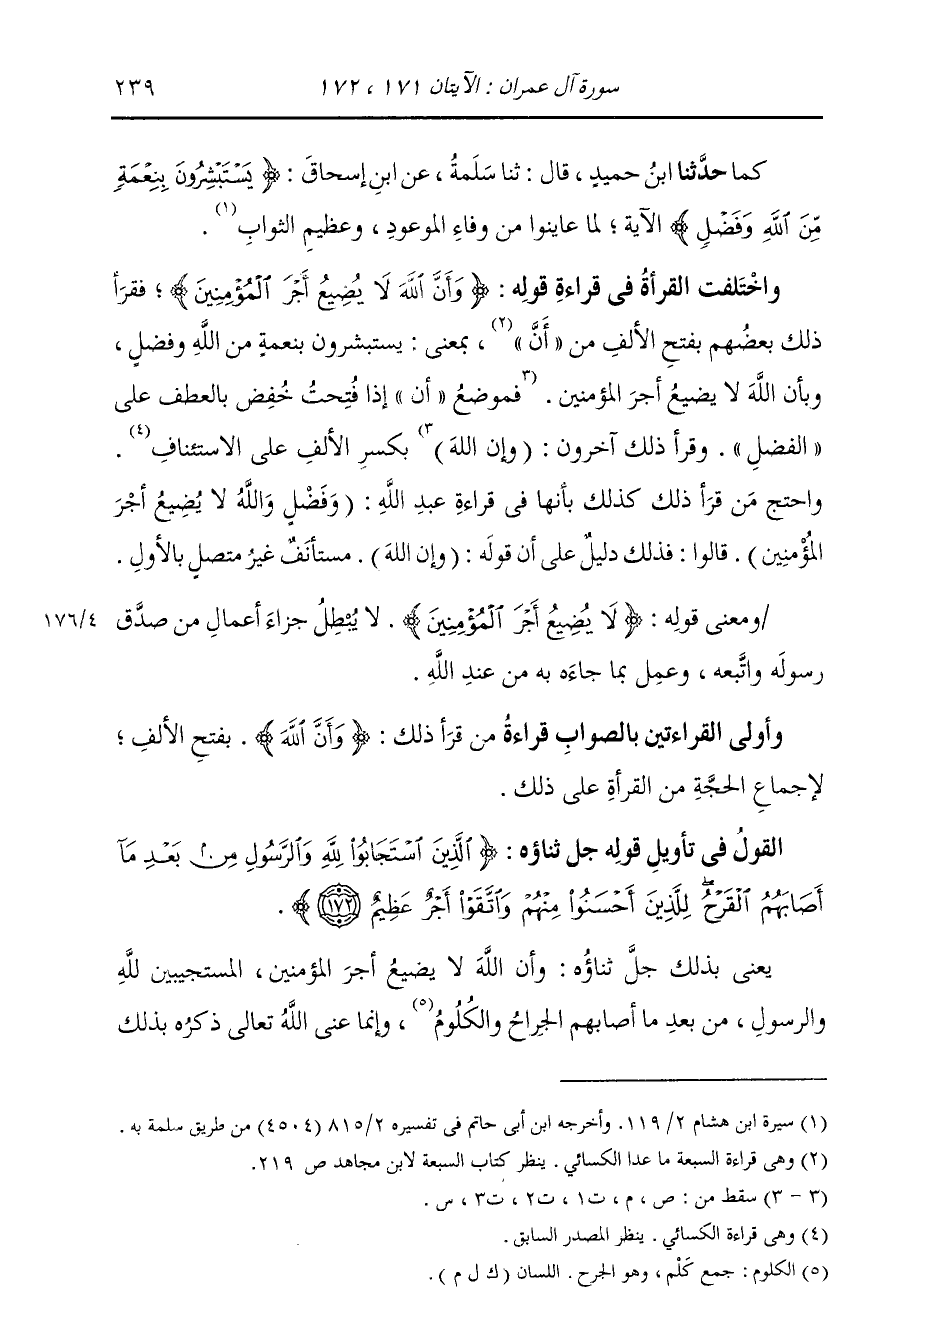 سورة آل عمران : الآيتان ١٧١ ، ١٧٢ ٢٣٩
كما حدَّثنا ابنُ حميدٍ ، قال : ثنا سَلَمةُ ، عن ابنِ إسحاقَ : ﴿ يَسْتَبْشِرُونَ بِنِعْمَةٍ
مِّنَ ٱللَّهِ وَفَضْلٍ ﴾ الآية ؛ لما عاينوا من وفاءِ الموعودِ ، وعظيمِ الثوابِ(١) .
واخْتَلفت القرأةُ فى قراءةِ قولِه : ﴿ وَأَنَّ ٱللَّهَ لَا يُضِيعُ أَجْرَ ٱلْمُؤْمِنِينَ ﴾ ؛ فقرَأ
ذلك بعضُهم بفتحِ الألفِ من « أَنَّ »(٢) ، بمعنى : يستبشرون بنعمةٍ من اللَّهِ وفضلٍ ،
وبأن اللَّهَ لا يضيعُ أجرَ المؤمنين . (٣فموضعُ « أن » إذا فُتِحتُ خُفِض بالعطف على
« الفضلِ » . وقرأ ذلك آخرون : ( وإن اللهَ )٣) بكسرِ الألفِ على الاستئنافِ(٤) .
واحتج مَن قرَأ ذلك كذلك بأنها فى قراءةِ عبدِ اللَّهِ : ( وَفَضْلٍ وَاللَّهُ لا يُضِيعُ أجْرَ
المُؤْمِنِين ) . قالوا : فذلك دليلٌ على أن قولَه : ( وإن اللهَ ) . مستأنَفٌ غيرُ متصلٍ بالأولِ .
/ومعنى قولِه : ﴿ لَا يُضِيعُ أَجْرَ ٱلْمُؤْمِنِينَ ﴾ . لا يُبْطِلُ جزاءَ أعمالِ من صدَّق ١٧٦/٤
رسولَه واتَّبعه ، وعمِل بما جاءَه به من عندِ اللَّهِ .
وأولى القراءتين بالصوابِ قراءةُ من قرَأ ذلك : ﴿ وَأَنَّ ٱللَّهَ ﴾ . بفتحِ الألفِ ؛
لإجماعِ الحجَّةِ من القرأةِ على ذلك .
القولُ فى تأويلِ قوله جل ثناؤه : ﴿ ٱلَّذِينَ ٱسْتَجَابُوا۟ لِلَّهِ وَٱلرَّسُولِ مِنۢ بَعْدِ مَآ
أَصَابَهُمُ ٱلْقَرْحُ ۚ لِلَّذِينَ أَحْسَنُوا۟ مِنْهُمْ وَٱتَّقَوْا۟ أَجْرٌ عَظِيمٌ ١٧٢ ﴾ .
يعنى بذلك جلَّ ثناؤُه : وأن اللَّهَ لا يضيعُ أجرَ المؤمنين ، المستجيبين للَّهِ
والرسولِ ، من بعدِ ما أصابهم الجِراحُ والكُلُومُ(٥) ، وإنما عنى اللَّهُ تعالى ذكرُه بذلك
(١) سيرة ابن هشام ٢/ ١١٩. وأخرجه ابن أبى حاتم فى تفسيره ٨١٥/٢ (٤٥٠٤) من طريق سلمة به .
(٢) وهى قراءة السبعة ما عدا الكسائي . ينظر كتاب السبعة لابن مجاهد ص ٢١٩.
(٣ - ٣) سقط من : ص ، م ، ت١ ، ت٢ ، ت٣ ، س .
(٤) وهى قراءة الكسائي . ينظر المصدر السابق .
(٥) الكلوم : جمع كَلْم ، وهو الجرح . اللسان ( ك ل م ) .